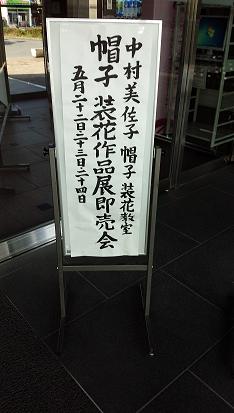 中村美佐子 帽子 装花教室
帽子 装花作品展即売会
五月二十二日二十三日二十四日